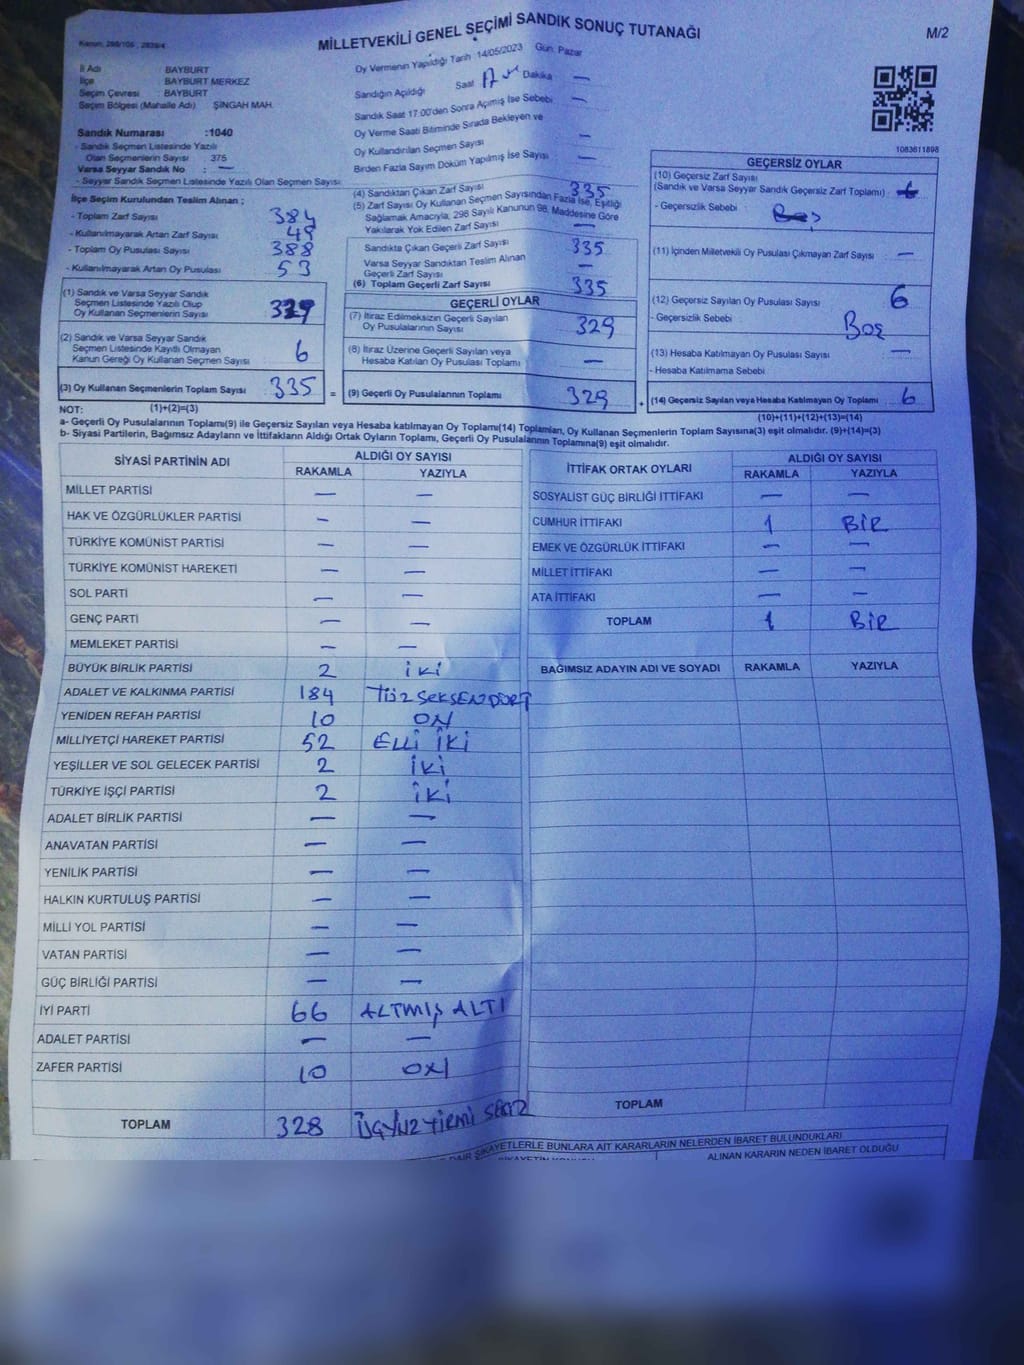 Kanun: 298/105 , 2839/4
MİLLETVEKİLİ GENEL SEÇİMİ SANDIK SONUÇ TUTANAĞI
M/2
İl Adı : BAYBURT
İlçe : BAYBURT MERKEZ
Seçim Çevresi : BAYBURT
Seçim Bölgesi (Mahalle Adı) : ŞİNGAH MAH.
Sandık Numarası :1040
- Sandık Seçmen Listesinde Yazılı
Olan Seçmenlerin Sayısı : 375
Varsa Seyyar Sandık No : —
- Seyyar Sandık Seçmen Listesinde Yazılı Olan Seçmen Sayısı
İlçe Seçim Kurulundan Teslim Alınan ;
- Toplam Zarf Sayısı 384
- Kullanılmayarak Artan Zarf Sayısı 49
- Toplam Oy Pusulası Sayısı 388
- Kullanılmayarak Artan Oy Pusulası 53
(1) Sandık ve Varsa Seyyar Sandık
Seçmen Listesinde Yazılı Olup
Oy Kullanan Seçmenlerin Sayısı 329
(2) Sandık ve Varsa Seyyar Sandık
Seçmen Listesinde Kayıtlı Olmayan
Kanun Gereği Oy Kullanan Seçmen Sayısı 6
(3) Oy Kullanan Seçmenlerin Toplam Sayısı 335 =
Oy Vermenin Yapıldığı Tarih 14/05/2023 Gün: Pazar
Sandığın Açıldığı Saat 17 Dakika —
Sandık Saat 17:00'den Sonra Açılmış İse Sebebi —
Oy Verme Saati Bitiminde Sırada Bekleyen ve
Oy Kullandırılan Seçmen Sayısı —
Birden Fazla Sayım Döküm Yapılmış İse Sayısı —
(4) Sandıktan Çıkan Zarf Sayısı 335
(5) Zarf Sayısı Oy Kullanan Seçmen Sayısından Fazla İse, Eşitliği
Sağlamak Amacıyla, 298 Sayılı Kanunun 98. Maddesine Göre
Yakılarak Yok Edilen Zarf Sayısı —
Sandıkta Çıkan Geçerli Zarf Sayısı 335
Varsa Seyyar Sandıktan Teslim Alınan
Geçerli Zarf Sayısı —
(6) Toplam Geçerli Zarf Sayısı 335
GEÇERLİ OYLAR
(7) İtiraz Edilmeksizin Geçerli Sayılan
Oy Pusulalarının Sayısı 329
(8) İtiraz Üzerine Geçerli Sayılan veya
Hesaba Katılan Oy Pusulası Toplamı —
(9) Geçerli Oy Pusulalarının Toplamı 329 +
1083611898
GEÇERSİZ OYLAR
(10) Geçersiz Zarf Sayısı
(Sandık ve Varsa Seyyar Sandık Geçersiz Zarf Toplamı) 6
- Geçersizlik Sebebi Boş
(11) İçinden Milletvekili Oy Pusulası Çıkmayan Zarf Sayısı —
(12) Geçersiz Sayılan Oy Pusulası Sayısı 6
- Geçersizlik Sebebi Boş
(13) Hesaba Katılmayan Oy Pusulası Sayısı —
- Hesaba Katılmama Sebebi
(14) Geçersiz Sayılan veya Hesaba Katılmayan Oy Toplamı 6
NOT: (1)+(2)=(3)
(10)+(11)+(12)+(13)=(14)
a- Geçerli Oy Pusulalarının Toplamı(9) ile Geçersiz Sayılan veya Hesaba katılmayan Oy Toplamı(14) Toplamları, Oy Kullanan Seçmenlerin Toplam Sayısına(3) eşit olmalıdır. (9)+(14)=(3)
b- Siyasi Partilerin, Bağımsız Adayların ve İttifakların Aldığı Ortak Oyların Toplamı, Geçerli Oy Pusulalarının Toplamına(9) eşit olmalıdır.
SİYASİ PARTİNİN ADI ALDIĞI OY SAYISI
RAKAMLA YAZIYLA
MİLLET PARTİSİ — —
HAK VE ÖZGÜRLÜKLER PARTİSİ — —
TÜRKİYE KOMÜNİST PARTİSİ — —
TÜRKİYE KOMÜNİST HAREKETİ — —
SOL PARTİ — —
GENÇ PARTİ — —
MEMLEKET PARTİSİ — —
BÜYÜK BİRLİK PARTİSİ 2 İKİ
ADALET VE KALKINMA PARTİSİ 184 YÜZ SEKSENDÖRT
YENİDEN REFAH PARTİSİ 10 ON
MİLLİYETÇİ HAREKET PARTİSİ 52 ELLİ İKİ
YEŞİLLER VE SOL GELECEK PARTİSİ 2 İKİ
TÜRKİYE İŞÇİ PARTİSİ 2 İKİ
ADALET BİRLİK PARTİSİ — —
ANAVATAN PARTİSİ — —
YENİLİK PARTİSİ — —
HALKIN KURTULUŞ PARTİSİ — —
MİLLİ YOL PARTİSİ — —
VATAN PARTİSİ — —
GÜÇ BİRLİĞİ PARTİSİ — —
İYİ PARTİ 66 ALTMIŞ ALTI
ADALET PARTİSİ — —
ZAFER PARTİSİ 10 ON
TOPLAM 328 ÜÇYÜZ YİRMİ SEKİZ
İTTİFAK ORTAK OYLARI ALDIĞI OY SAYISI
RAKAMLA YAZIYLA
SOSYALİST GÜÇ BİRLİĞİ İTTİFAKI — —
CUMHUR İTTİFAKI 1 BİR
EMEK VE ÖZGÜRLÜK İTTİFAKI — —
MİLLET İTTİFAKI — —
ATA İTTİFAKI — —
TOPLAM 1 BİR
BAĞIMSIZ ADAYIN ADI VE SOYADI RAKAMLA YAZIYLA
TOPLAM
DAİR ŞİKAYETLERLE BUNLARA AİT KARARLARIN NELERDEN İBARET BULUNDUKLARI
ALINAN KARARIN NEDEN İBARET OLDUĞU